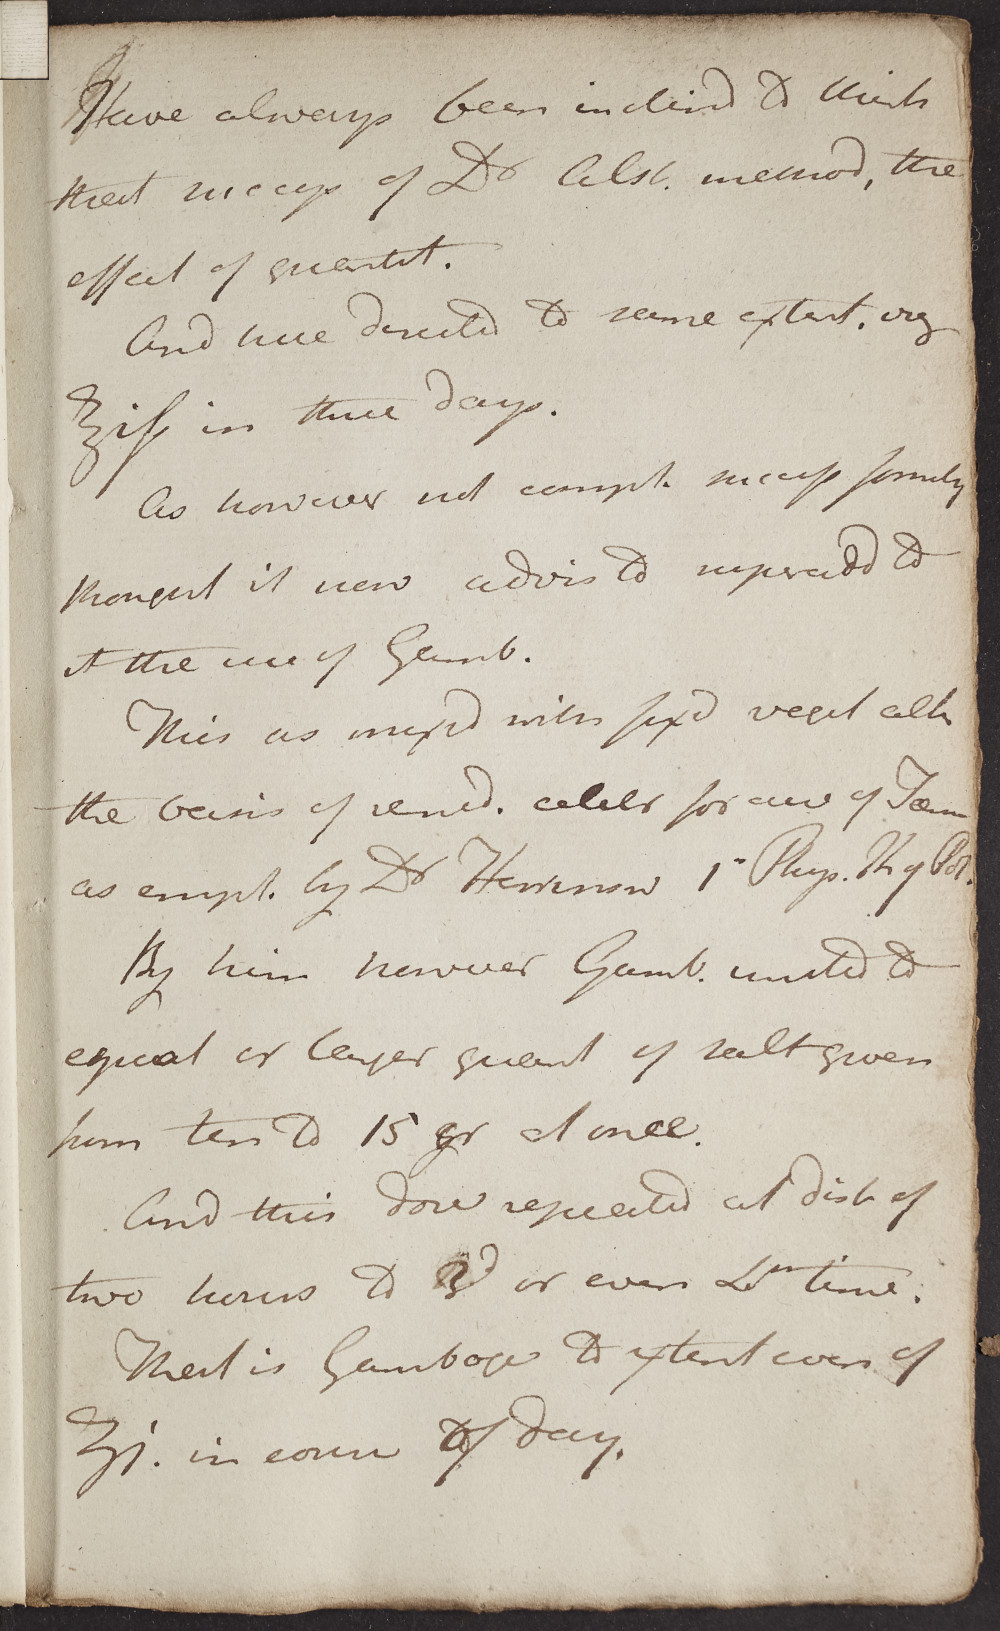 Have always been inclind to think
that success of Dr Alst. method, the
effect of quantit.
And here directed to same extent. viz
℥iſs in three days.
As however not compl. success formerly
thought it now advis to superadd to
it the use of Gamb.
This as mix'd with fix'd veget alk
the basis of remd. celebr for cure of Tæn
as empl. by Dr 1st Phys. K of Pol.
By him however Gamb. united to
equal or larger quant of salt given
from ten to 15 gr at once.
And this dose repeated at dist of
two hours to 3d or even 4th time.
That is Gamboge to extent even of
ʒi. in course of day.